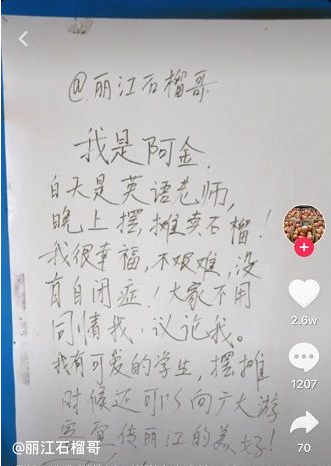 @丽江石榴哥
我是阿金.
白天是英语老师,
晚上摆摊卖石榴!
我很幸福,不艰难,没
有自闭症!大家不用
同情我,议论我。
我有可爱的学生,摆摊
时候还可以向广大游
客宣传丽江的美好!
2.6w
1207
70
@丽江石榴哥